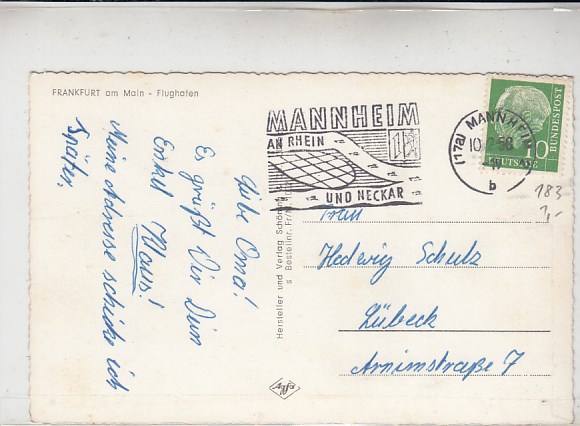 FRANKFURT am Main - Flughafen
Liebe Oma!
Es grüßt Dir Dein
Enkel Klaus!
Meine Adresse schicke ich
Später.
Hersteller und Verlag Schöning
Bestellnr.
Agfa
MANNHEIM
AN RHEIN
UND NECKAR
(17a) MANNHEIM
10.
58
b
10
DEUTSCHE
BUNDESPOST
183
1,-
Frau
Hedwig Schulz
Lübeck
Arnimstraße 7